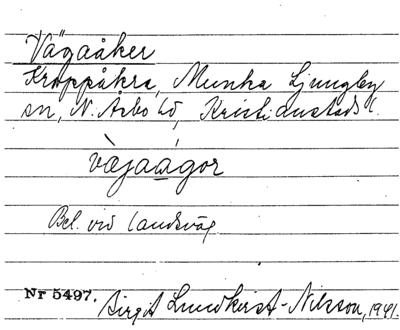 Vägaåker
Kroppåkra, Munka Ljungby
sn, N. Åsbo hd, Kristianstads l.
vàjaágor
Bel. vid landsväg
Nr 5497. Birgit Lundkvist-Nilsson, 1941.